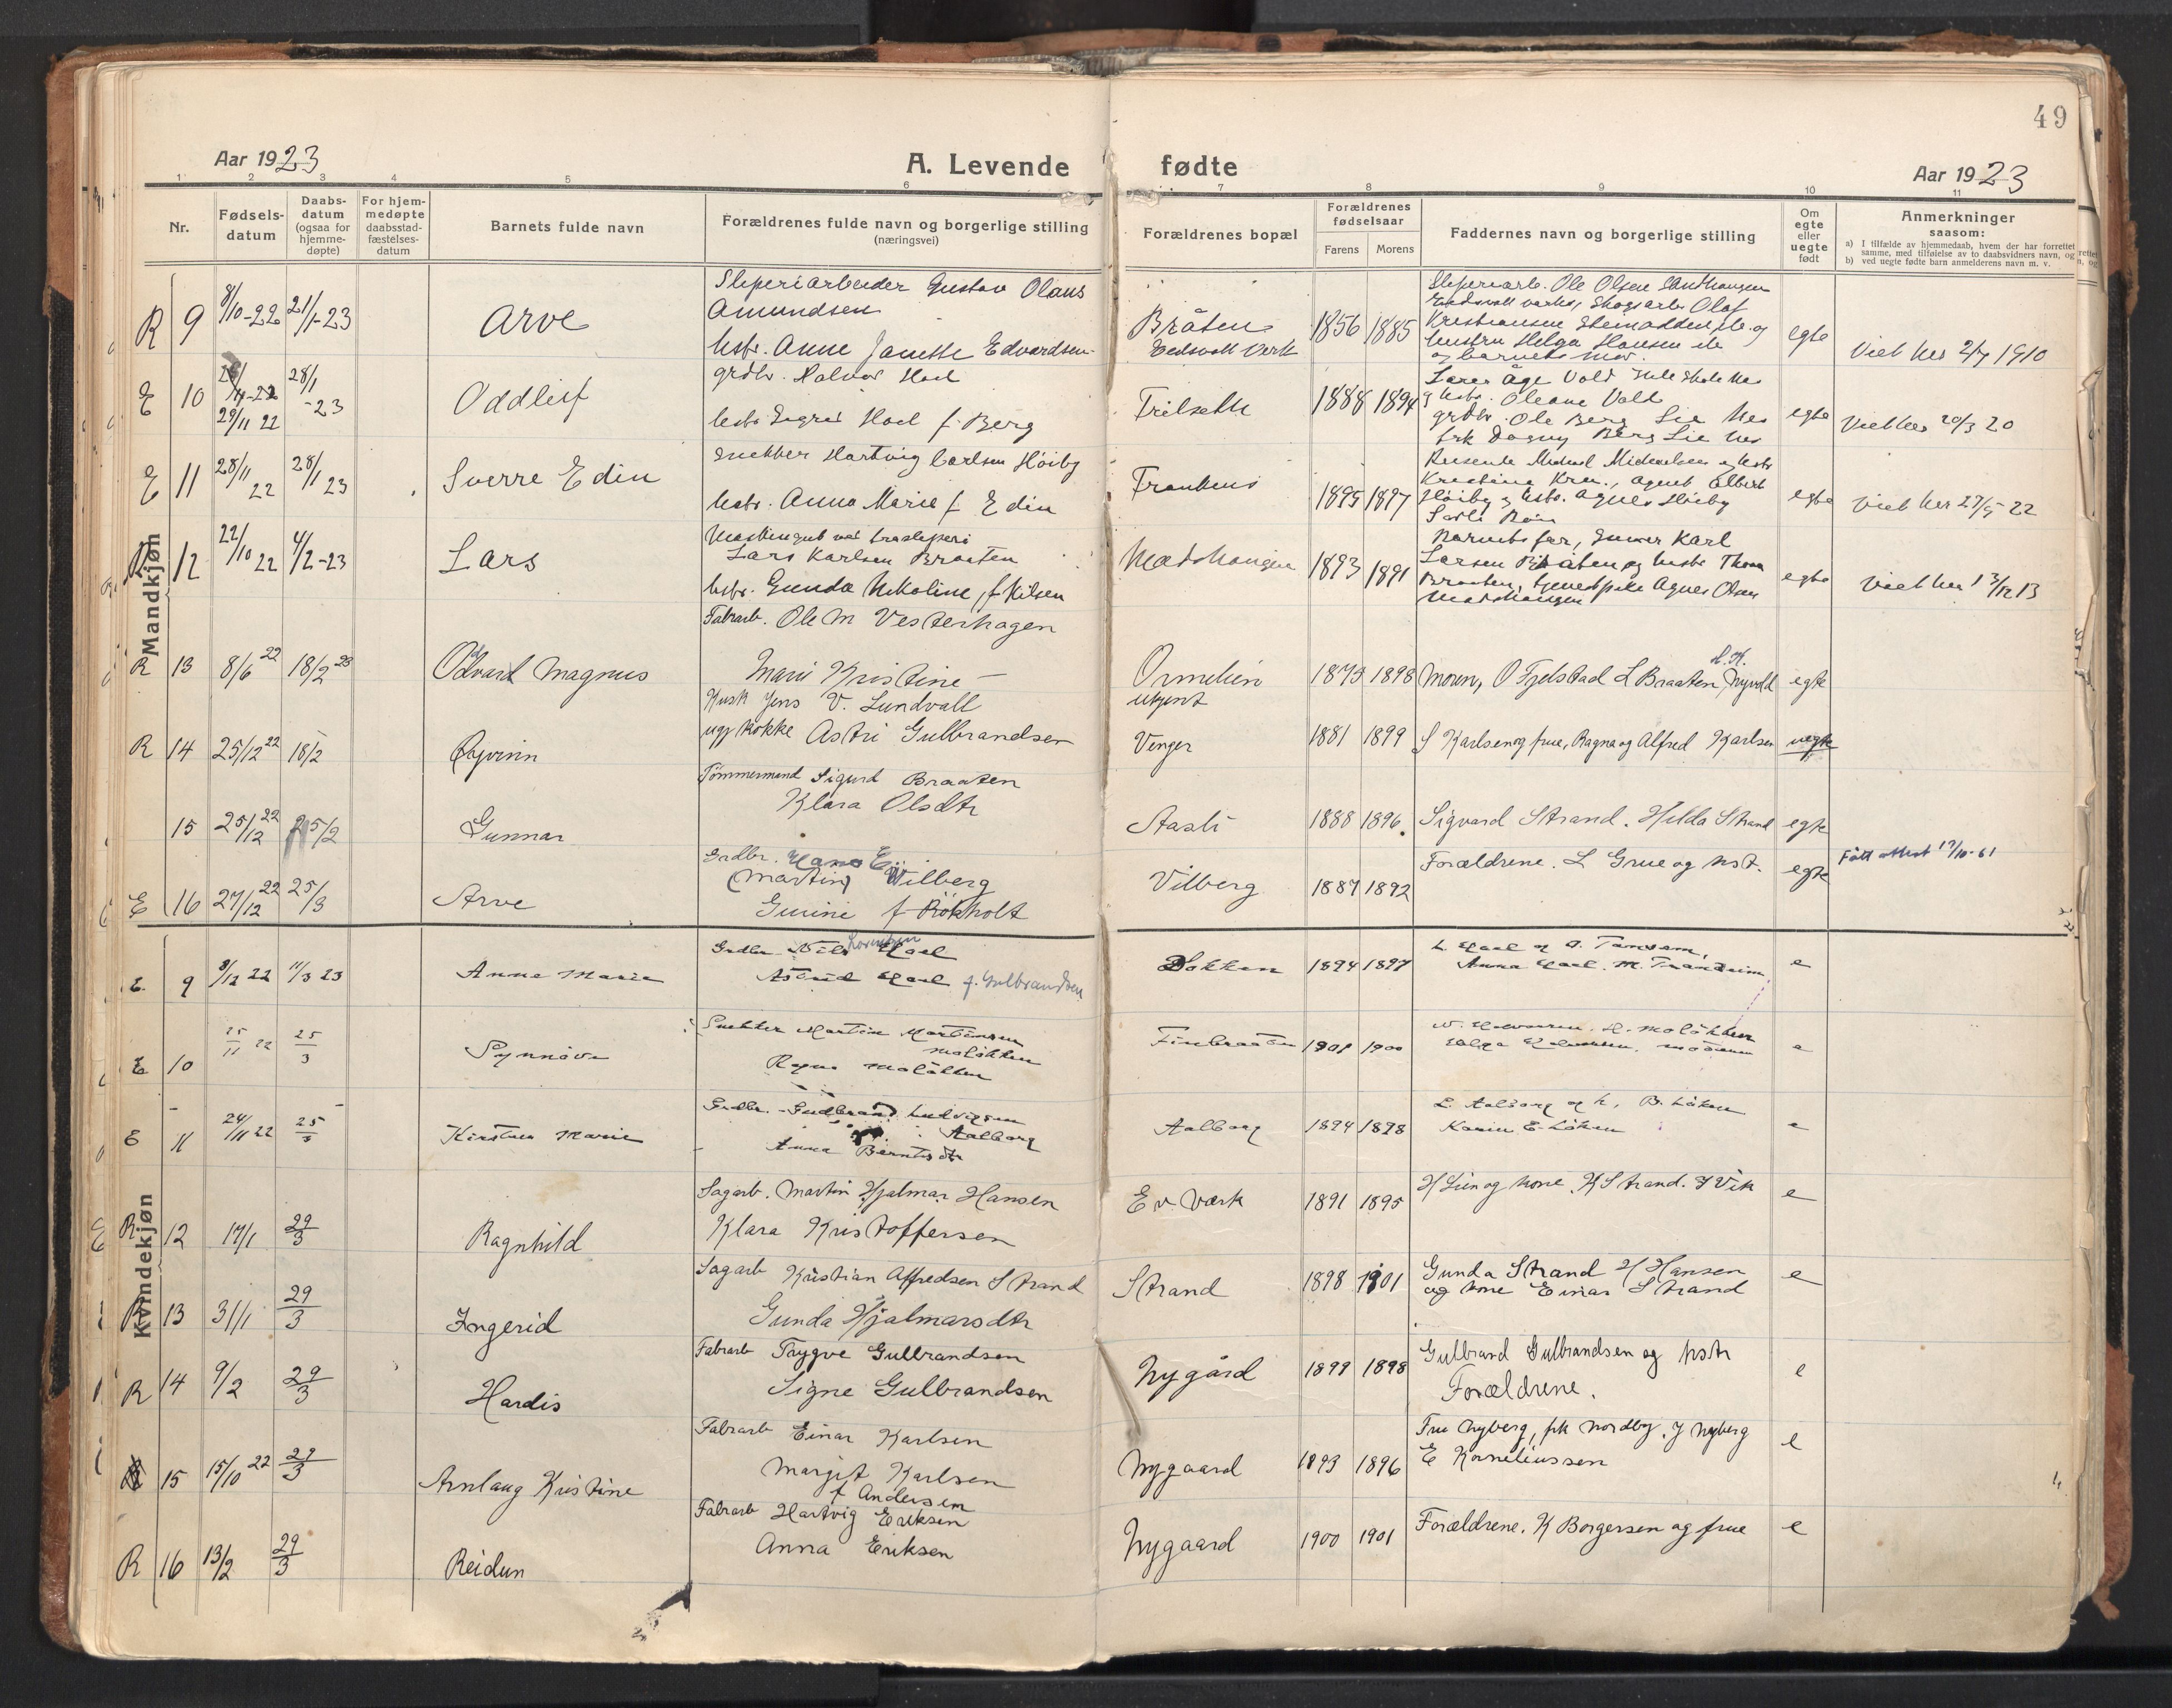 49
Aar 1923
A. Levende fødte
Aar 1923
1 2 3 4 5 6 7 8 9 10 11
Nr.
Fødsels-
datum
Daabs-
datum
(ogsaa for
hjemme-
døpte)
For hjem-
medøpte
daabsstad-
fæstelses-
datum
Barnets fulde navn
Forældrenes fulde navn og borgerlige stilling
(næringsvei)
Forældrenes bopæl
Forældrenes
fødselsaar
Farens Morens
Faddernes navn og borgerlige stilling
Om
egte
eller
uegte
født
Anmerkninger
saasom:
a) I tilfælde av hjemmedaab, hvem der har forrettet
samme, med tilføielse av to daabsvidners navn, og
b) ved uegte fødte barn anmelderens navn m. v.
Mandkjøn
R 9 8/10-22 21/1-23 Arve
Sliperiarbeider Gustav Olaus
Amundsen
hstr. Anne Janette Edvardsen
Bråten
Eidsvoll Verk
1856 1885
Sliperiarb. Ole Olsen Sandhaugen
Eidsvoll værk, Skogsarb. Olaf
Kristiansen
hustru Helga Hansen
og barnets mor.
egte
Viet her 2/7 1910
E 10 29/11 22 28/1-23 Oddleif
grdbr. Halvor Hoel
hstr Sigrid Hoel f. Berg
Trilseth
1888 1894
Lærer Åge Vold
og hstr. Oleane Vold
grdbr. Ole Berg Lie Nes
frk Dagny Berg Lie Nes
egte
Viet her 20/3 20
E 11 28/11 22 28/1 23 Sverre Edin
Snekker Hartvig Carlsen Høiby
hstr. Anna Marie f. Edin
1895 1897
Kristine Agent Albert
Høiby og hstr. Agnes Høiby
egte
Viet her 27/5-22
12 22/10 22 4/2-23 Lars
Lars Karlsen Braaten
hstr. Gunda Nikoline, f Nilsen
Matshaugen
1893 1891
Barnets far, Karl
Larsen Bråten og hustr Thora
Braaten, tjenestpike Agnes Olsen
Matshaugen
egte
Viet her 13/12 13
R 13 8/6 22 18/2 23 Oddvart Magnus
Fabrarb. Ole M Vesterhagen
Mari Kristine —
Ormlien
utgent
1873 1898
Moren, O Fjelstad L Braaten, H.K. Nyvold
egte
R 14 25/12 22 18/2 Øyvinn
Kusk Jens V. Lundvall
ugg kokke Astri Gulbrandsen
Venger
1881 1899
S Karlsen og frue, Ragna og Alfred Karlsen
uegte
15 25/12 22 25/2 Gunnar
Tømmermand Sigurd Braaten
Klara Olsdtr
Aasli
1888 1896
Sigvard Strand. Hilda Strand
egte
E 16 27/12 22 25/3 Arve
Grdbr. Hans E
(Martin) Vilberg
Gurine f Rökholt
Vilberg
1887 1892
Forældrene. L Grue og hst.
egte
Fått attest 17/10-61
Kvindekjøn
E. 9 8/12 22 11/3 23 Anna Marie
Grdbr Nils Hoel
Astrid Hoel f. Gulbrandsen
Dokken
1894 1897
L. Hoel og
Anna Hoel. M. Trandheim
e
E 10 25/11 22 25/3 Synnöve
Snekker Martin Martinsen
Moløkken
Ragna Moløkken
Finbraaten
1901 1900
e
E 11 24/11 22 25/3 Kirsten Marie
Grdbr. Gudbrand Ludvigsen
Aalborg
Anna Berntsdtr
Aalborg
1894 1898
L. Aalborg og h, B. Löken
Karin E. Löken
e
R 12 17/1 29/3 Ragnhild
Sagarb. Martin Hjalmar Hansen
Klara Kristoffersen
Ev Værk
1891 1895
H Lien og kone. K Strand. J Vik
e
R 13 31/1 29/3 Ingerid
Sagarb Kristian Alfredsen Strand
Gunda Hjalmarsdtr
Strand
1898 1901
Gunda Strand H Hansen
og kone Einar Strand
e
R 14 9/2 29/3 Hardis
Fabrarb Trygve Gulbrandsen
Signe Gulbrandsen
Nygård
1899 1898
Gulbrand Gulbrandsen og hstr
Forældrene.
e
R 15 15/10 22 29/3 Arnlaug Kristine
Fabrarb Einar Karlsen
Margit Karlsen
f Andersen
Nygaard
1893 1896
Fru Nyberg, frk Nordby. J Nyberg
E Korneliussen
e
R 16 13/2 29/3 Reidun
Fabrarb Hartvig Eriksen
Anna Eriksen
Nygaard
1900 1901
Forældrene. K Borgersen og frue
e